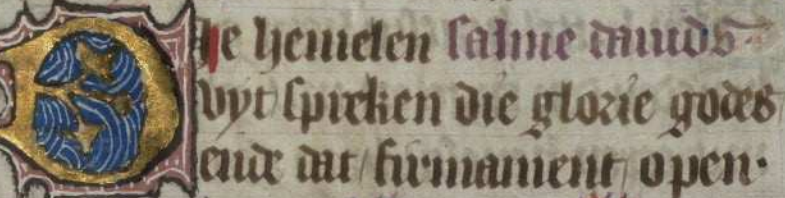 DIe hemelen salme dauids·
vyt spreken die glorie godes
ende dat firmament open·